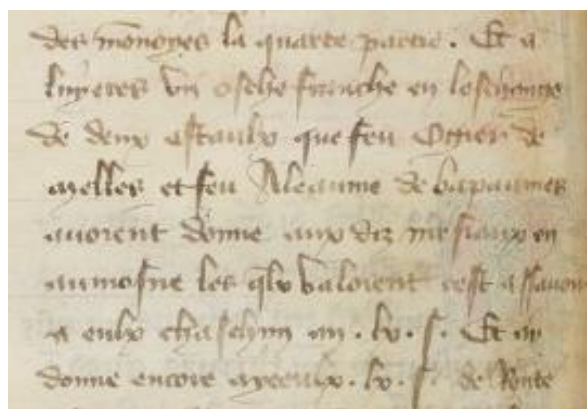 des monoyes la quarte partie . Et a
luyeres un osche franche en leschange
de deux estaulx que feu Ogier de
ayelles et feu Aleaume de bapaumes
avoient donne aux diz mesiaux en
aumosne les qlx valoient cest assavoir
a eulx chaschun an . lx . s . Et ai
donne encore ayceulx . lx . s . de Rente